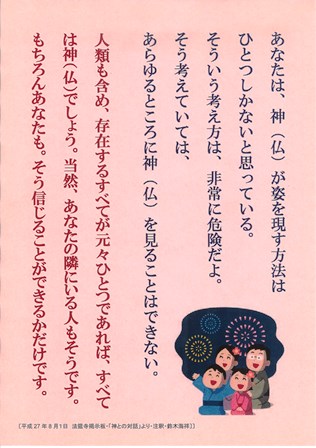 あなたは、神（仏）が姿を現す方法は
ひとつしかないと思っている。
そういう考え方は、非常に危険だよ。
そう考えていては、
あらゆるところに神（仏）を見ることはできない。
人類も含め、存在するすべてが元々ひとつであれば、すべて
は神（仏）でしょう。当然、あなたの隣にいる人もそうです。
もちろんあなたも。そう信じることができるかだけです。
［平成27年8月1日 法蔵寺掲示板・「神との対話」より・注釈・鈴木海祥］］